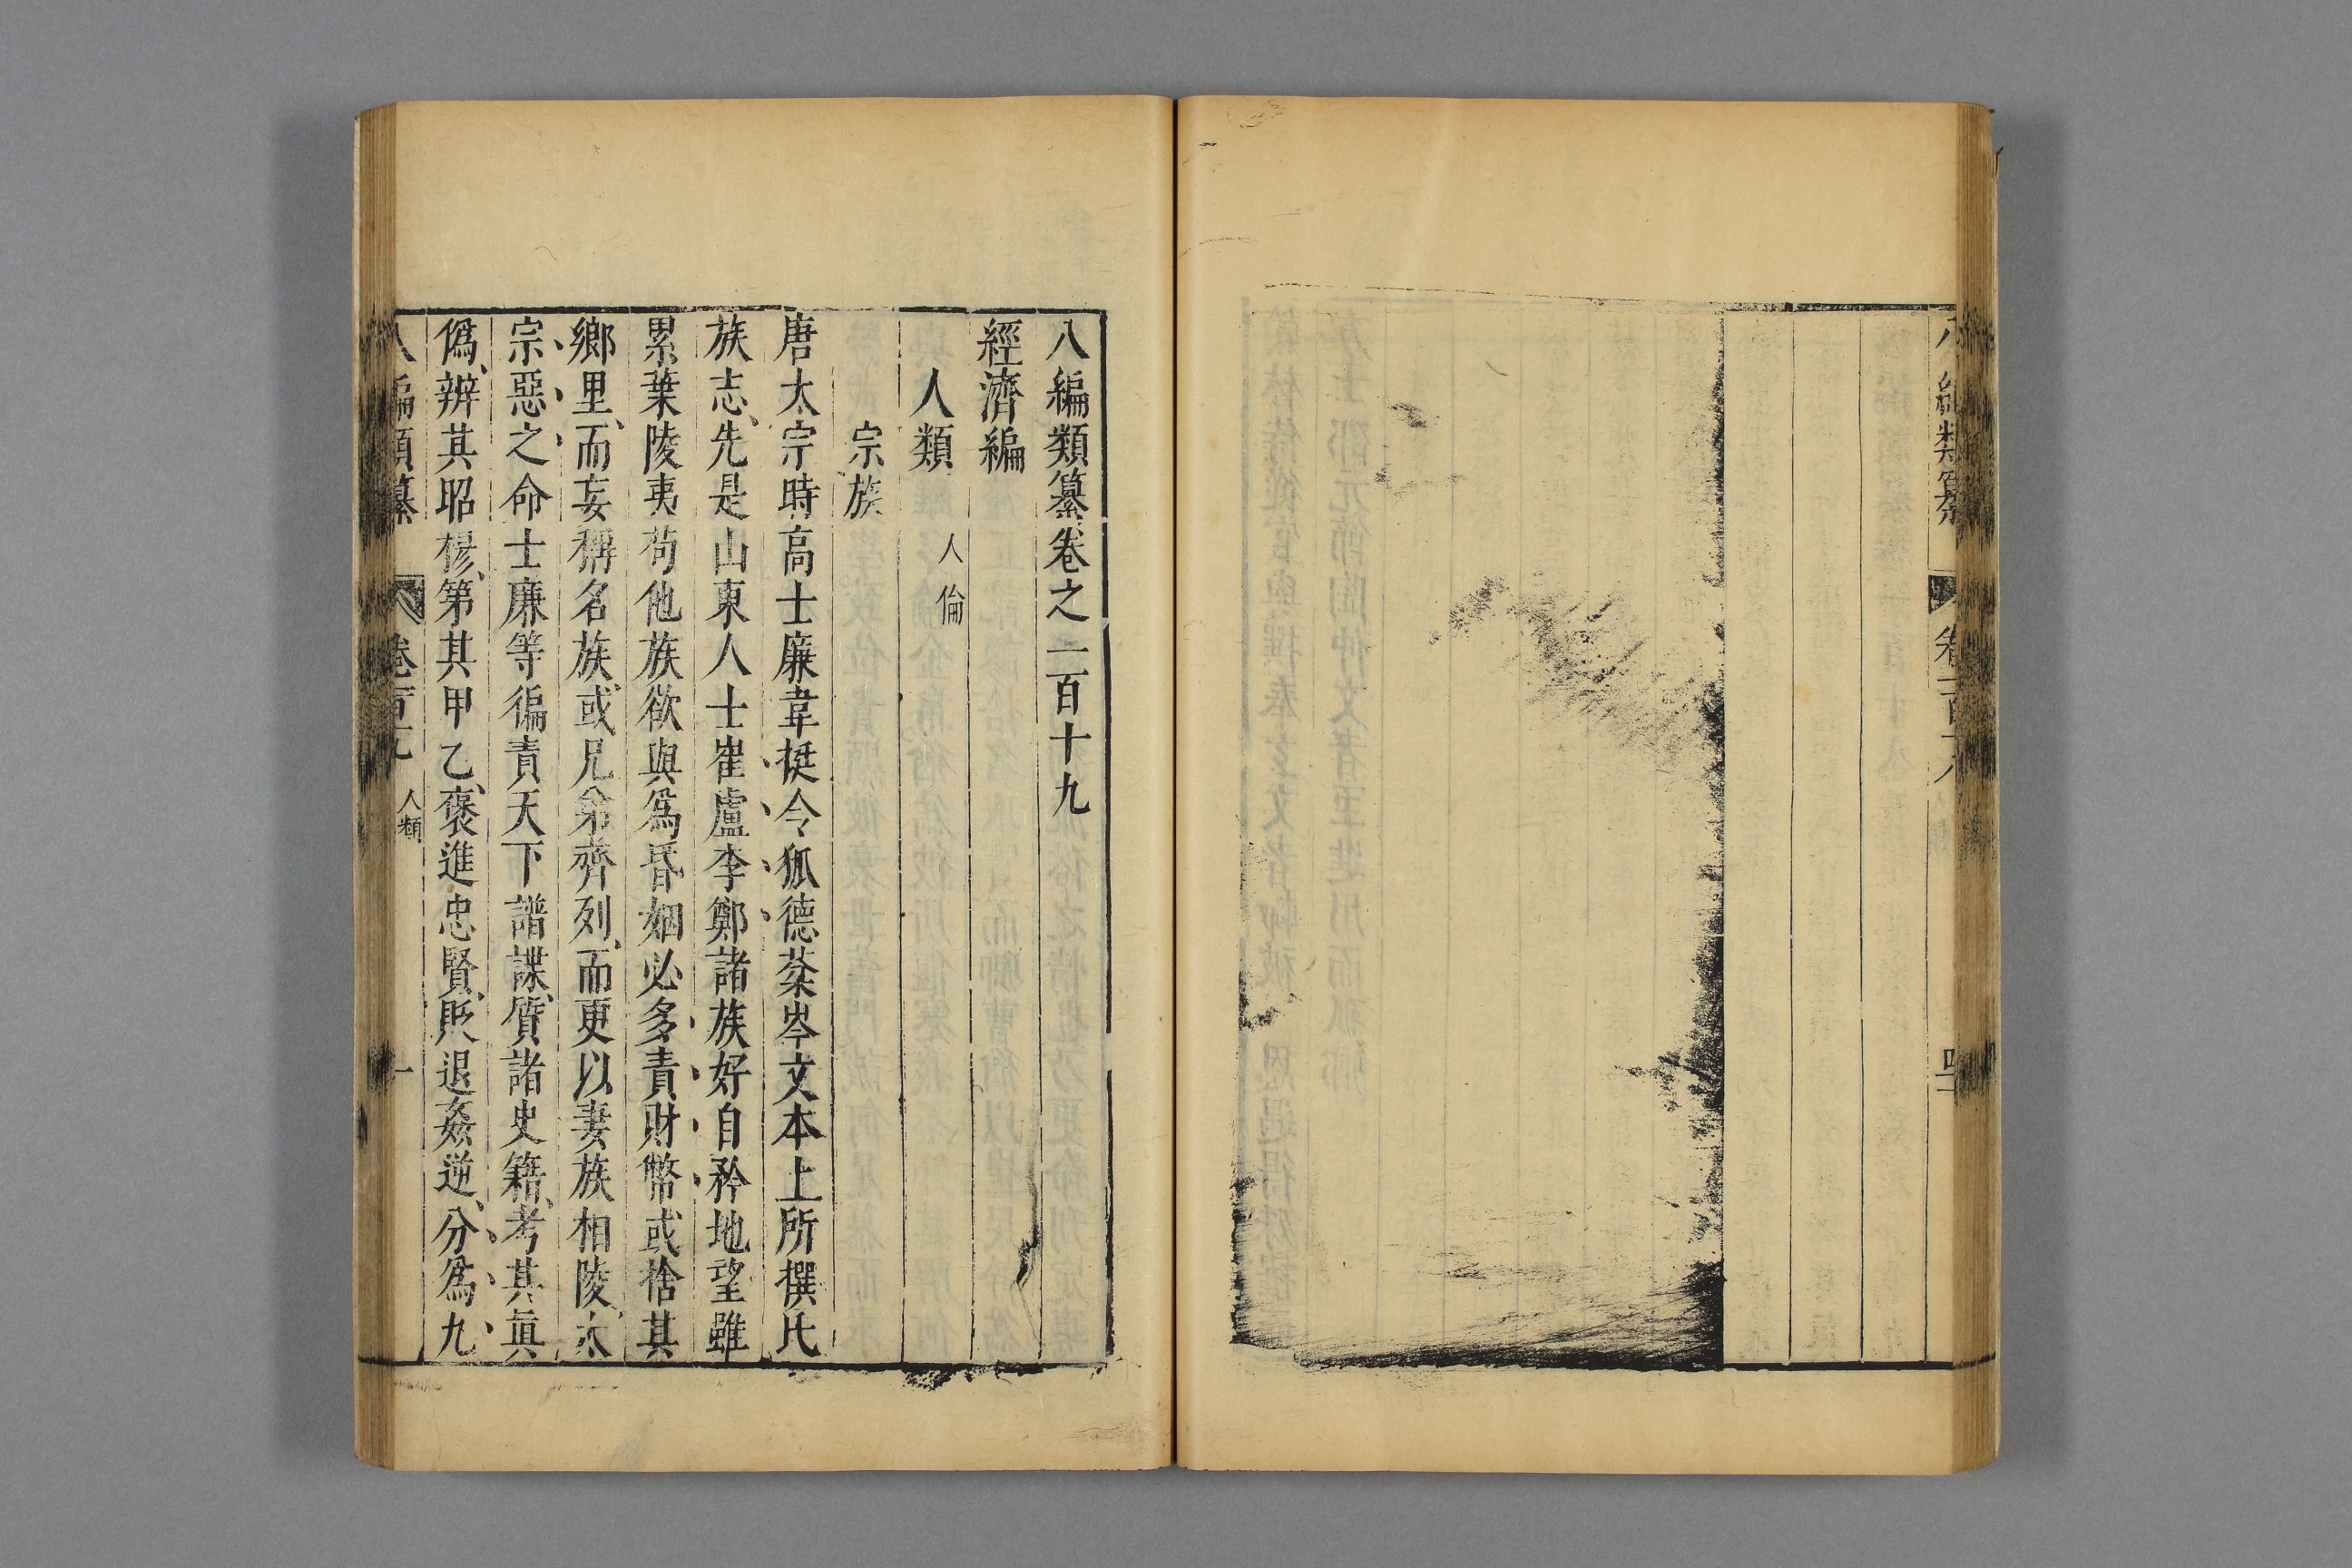 八編類纂
四十
八編類纂卷之二百十九
經濟編
人類　人倫
宗族
唐太宗時高士廉韋挺令狐德棻岑文本上所撰氏
族志、先是山東人士崔盧李鄭諸族好自矜地望雖
累葉陵夷苟他族欲與爲昏姻必多責財幣或捨其
鄉里、而妄稱名族、或兄弟齊列、而更以妻族相陵、太
宗惡之命士廉等徧責天下譜諜、質諸史籍、考其眞
僞、辨其昭穆、第其甲乙、褒進忠賢、貶退姦逆、分爲九
八編類纂　人類　一